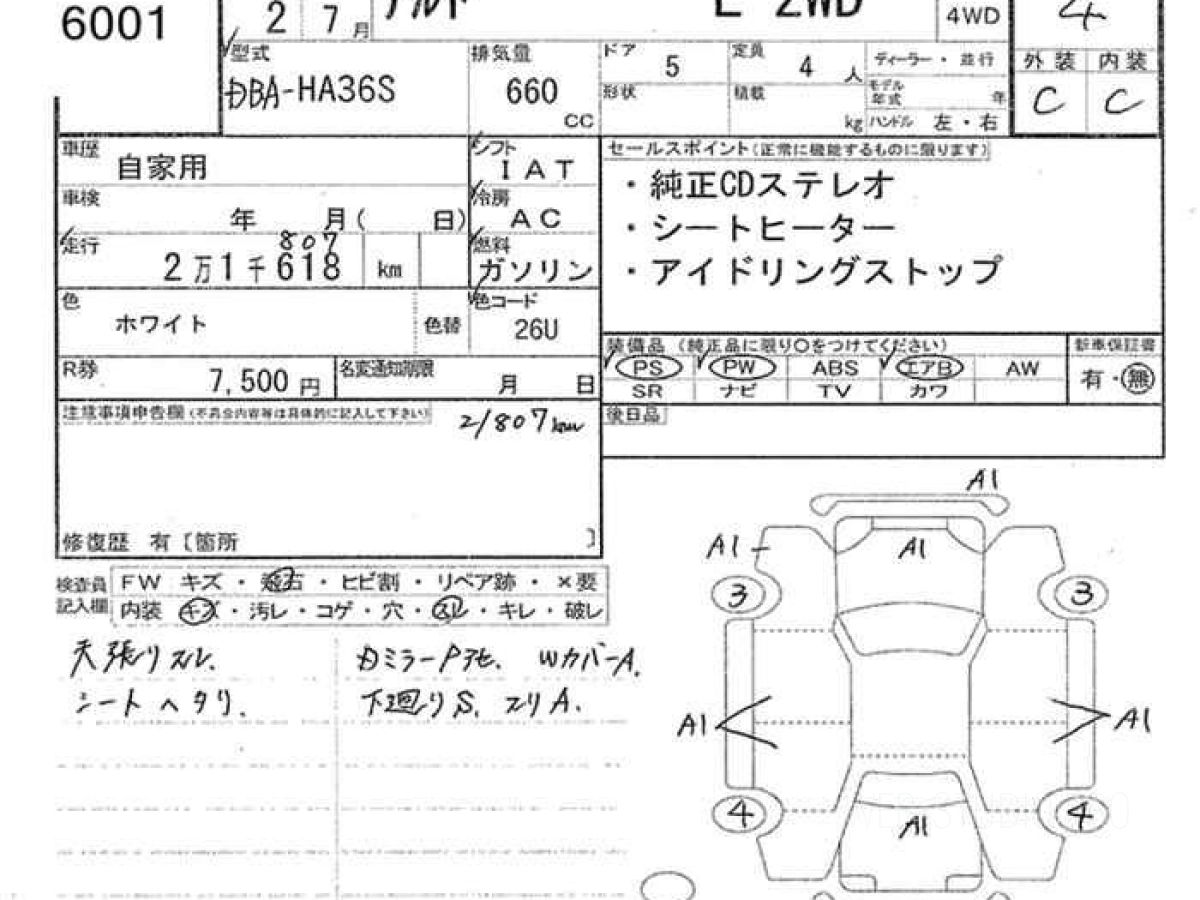 6001
2 7月 アルト L 2WD
4WD
4
型式
DBA-HA36S
排気量
660
CC
ドア
5
定員
4 人
ディーラー・並行
外装 内装
形状
積載
kg
モデル年式
年
ハンドル 左・右
C C
車歴
自家用
シフト
IAT
車検
年 月( 日)
冷房
AC
走行
807
2万1千618 km
燃料
ガソリン
セールスポイント(正常に機能するものに限ります)
・純正CDステレオ
・シートヒーター
・アイドリングストップ
色
ホワイト
色替
色コード
26U
R券
7,500 円
名変通知期限
月 日
装備品 (純正品に限り○をつけてください)
新車保証書
PS PW ABS エアB AW
有・無
SR ナビ TV カワ
後日品
注意事項申告欄(不具合内容等は具体的に記入して下さい)
21807km
修復歴 有〔箇所 〕
検査員記入欄
FW キズ・飛石・ヒビ割・リペア跡・×要
内装 キズ・汚レ・コゲ・穴・スレ・キレ・破レ
天張りスレ.
シートヘタリ.
Wカバー A.
下廻りS.
A1
A1
A1
3
3
A1
A1
4
4
A1